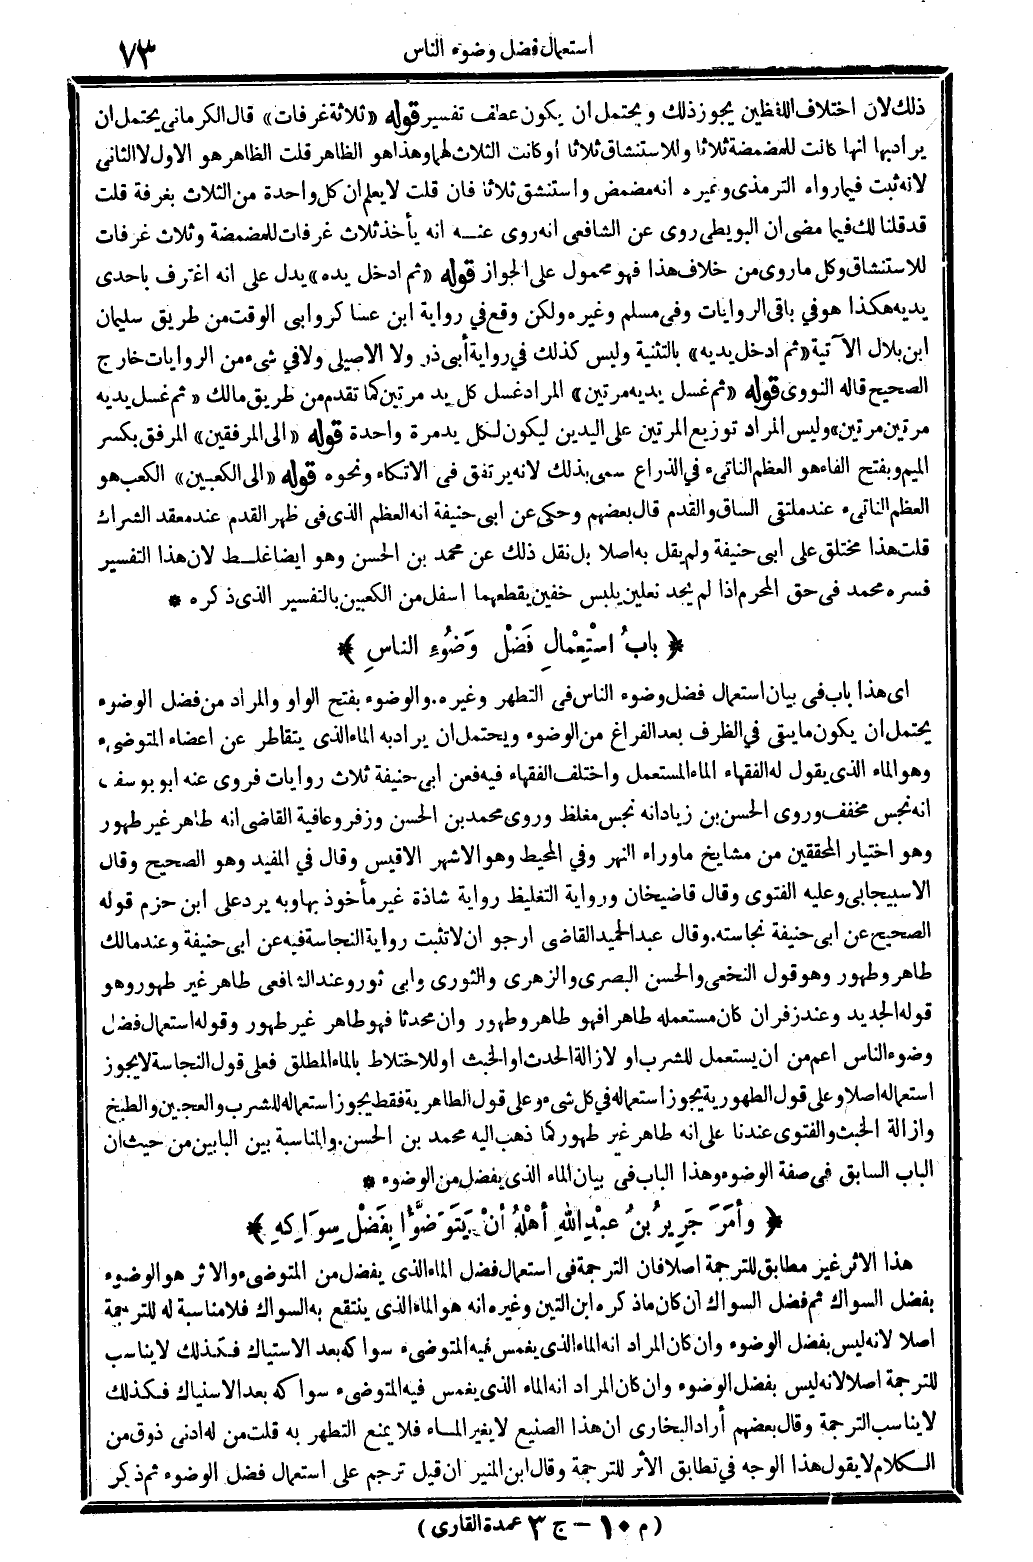 استعمال فضل وضوء الناس
٧٣
ذلك لان اختلاف اللفظين يجوز ذلك ويحتمل ان يكون عطف تفسير قوله «ثلاثة غرفات» قال الكرمانى يحتمل ان
يراد بها انها كانت للمضمضة ثلاثا وللاستنشاق ثلاثا أو كانت الثلاث لهما وهذا هو الظاهر قلت الظاهر هو الاول لا الثانى
لانه ثبت فيما رواه الترمذى وغيره انه مضمض واستنشق ثلاثا فان قلت لا يعلم ان كل واحدة من الثلاث بغرفة قلت
قد قلنا لك فيما مضى ان البويطى روى عن الشافعى انه روى عنه انه يأخذ ثلاث غرفات للمضمضة وثلاث غرفات
للاستنشاق وكل ما روى من خلاف هذا فهو محمول على الجواز قوله «ثم ادخل يده» يدل على انه اغترف باحدى
يديه هكذا هو في باقى الروايات وفى مسلم وغيره ولكن وقع في رواية ابن عساكر وابى الوقت من طريق سليمان
ابن بلال الآتية «ثم ادخل يديه» بالتثنية وليس كذلك في رواية أبى ذر ولا الاصيلى ولا في شىء من الروايات خارج
الصحيح قاله النووى قوله «ثم غسل يديه مرتين» المراد غسل كل يد مرتين كما تقدم من طريق مالك «ثم غسل يديه
مرتين مرتين» وليس المراد توزيع المرتين على اليدين ليكون لكل يد مرة واحدة قوله «الى المرفقين» المرفق بكسر
الميم وبفتح الفاء هو العظم الناتىء في الذراع سمى بذلك لانه يرتفق فى الاتكاء ونحوه قوله «الى الكعبين» الكعب هو
العظم الناتىء عند ملتقى الساق والقدم قال بعضهم وحكى عن ابى حنيفة انه العظم الذى فى ظهر القدم عند معقد الشراك
قلت هذا مختلق على ابى حنيفة ولم يقل به اصلا بل نقل ذلك عن محمد بن الحسن وهو ايضا غلط لان هذا التفسير
فسره محمد فى حق المحرم اذا لم يجد نعلين يلبس خفين يقطعهما اسفل من الكعبين بالتفسير الذى ذكره *
﴿ بابُ اسْتِعْمالِ فَضْلِ وَضُوءِ الناسِ ﴾
اى هذا باب فى بيان استعمال فضل وضوء الناس فى التطهر وغيره. والوضوء بفتح الواو والمراد من فضل الوضوء
يحتمل ان يكون ما يبقى في الظرف بعد الفراغ من الوضوء ويحتمل ان يراد به الماء الذى يتقاطر عن اعضاء المتوضىء
وهو الماء الذى يقول له الفقهاء الماء المستعمل واختلف الفقهاء فيه فعن ابى حنيفة ثلاث روايات فروى عنه ابو يوسف
انه نجس مخفف وروى الحسن بن زياد انه نجس مغلظ وروى محمد بن الحسن وزفر وعافية القاضى انه طاهر غير طهور
وهو اختيار المحققين من مشايخ ما وراء النهر وفي المحيط وهو الاشهر الاقيس وقال في المفيد وهو الصحيح وقال
الاسبيجابى وعليه الفتوى وقال قاضيخان ورواية التغليظ رواية شاذة غير مأخوذ بها وبه يرد على ابن حزم قوله
الصحيح عن ابى حنيفة نجاسته. وقال عبد الحميد القاضى ارجو ان لا تثبت رواية النجاسة فيه عن ابى حنيفة وعند مالك
طاهر وطهور وهو قول النخعى والحسن البصرى والزهرى والثورى وابى ثور وعند الشافعى طاهر غير طهور وهو
قوله الجديد وعند زفر ان كان مستعمله طاهرا فهو طاهر وطهور وان محدثا فهو طاهر غير طهور وقوله استعمال فضل
وضوء الناس اعم من ان يستعمل للشرب او لازالة الحدث او الخبث او للاختلاط بالماء المطلق فعلى قول النجاسة لا يجوز
استعماله اصلا وعلى قول الطهورية يجوز استعماله في كل شىء وعلى قول الطاهرية فقط يجوز استعماله للشرب والعجين والطبخ
وازالة الخبث والفتوى عندنا على انه طاهر غير طهور كما ذهب اليه محمد بن الحسن. والمناسبة بين البابين من حيث ان
الباب السابق فى صفة الوضوء وهذا الباب فى بيان الماء الذى يفضل من الوضوء *
﴿ وأمَرَ جَرِيرُ بنُ عبْدِ اللهِ أهْلَهُ أنْ يَتَوَضَّؤُا بِفَضْلِ سِوَاكِهِ ﴾
هذا الاثر غير مطابق للترجمة اصلا فان الترجمة فى استعمال فضل الماء الذى يفضل من المتوضىء والاثر هو الوضوء
بفضل السواك ثم فضل السواك ان كان ما ذكره ابن التين وغيره انه هو الماء الذى ينتقع به السواك فلا مناسبة له للترجمة
اصلا لانه ليس بفضل الوضوء وان كان المراد انه الماء الذى يغمس فيه المتوضىء سواكه بعد الاستياك فكذلك لا يناسب
للترجمة اصلا لانه ليس بفضل الوضوء وان كان المراد انه الماء الذى يغمس فيه المتوضىء سواكه بعد الاستياك فكذلك
لا يناسب الترجمة وقال بعضهم أراد البخارى ان هذا الصنيع لا يغير الماء فلا يمنع التطهر به قلت من له ادنى ذوق من
الكلام لا يقول هذا الوجه في تطابق الأثر للترجمة وقال ابن المنير ان قيل ترجم على استعمال فضل الوضوء ثم ذكر
( م ١٠ – ج ٣ عمدة القارى )